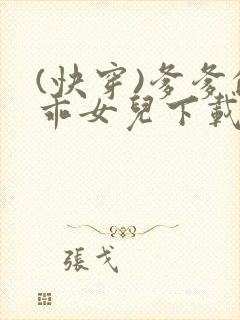 (快穿)爹爹
乖女兒下載
張戈